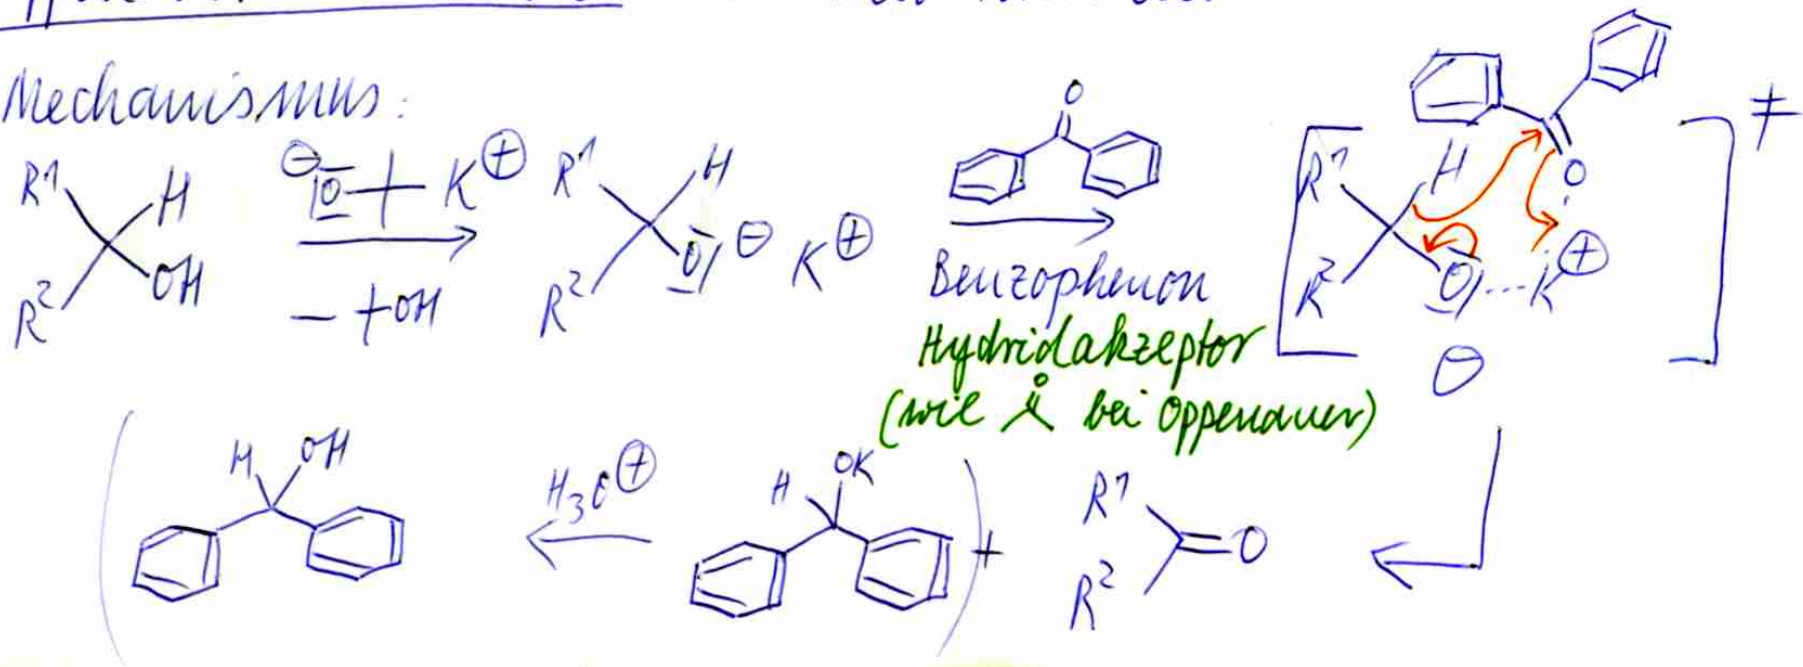 Mechanismus:
R1 H R2 OH
⊖|O K⊕
- OH
R1 H R2 O| ⊖ K⊕
O
Benzophenon
Hydridakzeptor
(wie O bei Oppenauer)
R1 H R2 O| K⊕ O ⊖ ≠
H OH
H3O⊕
H OK
+
R1 R2 O